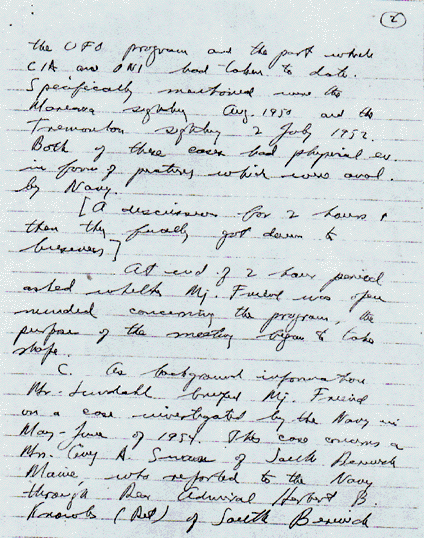 2
the UFO program and the part which
CIA and ONI had taken to date.
Specifically mentioned were the
Montana sighting Aug. 1950 and the
Tremonton sighting 2 July 1952.
Both of these cases had physical ev.
in form of pictures which were aval.
by Navy.
[A discussion for 2 hours &
then they finally got down to
business]
At end of 2 hour period
asked whether Mj. Friend was open
minded concerning the program, the
purpose of the meeting began to take
shape.
C. As background information
Mr. Lundahl briefed Mj. Friend
on a case investigated by the Navy in
May-June of 1954. This case concerns a
Mrs. Guy A. Swan of South Berwick
Maine, who reported to the Navy
through Rear Admiral Herbert B
Knowles (Ret) of South Berwick